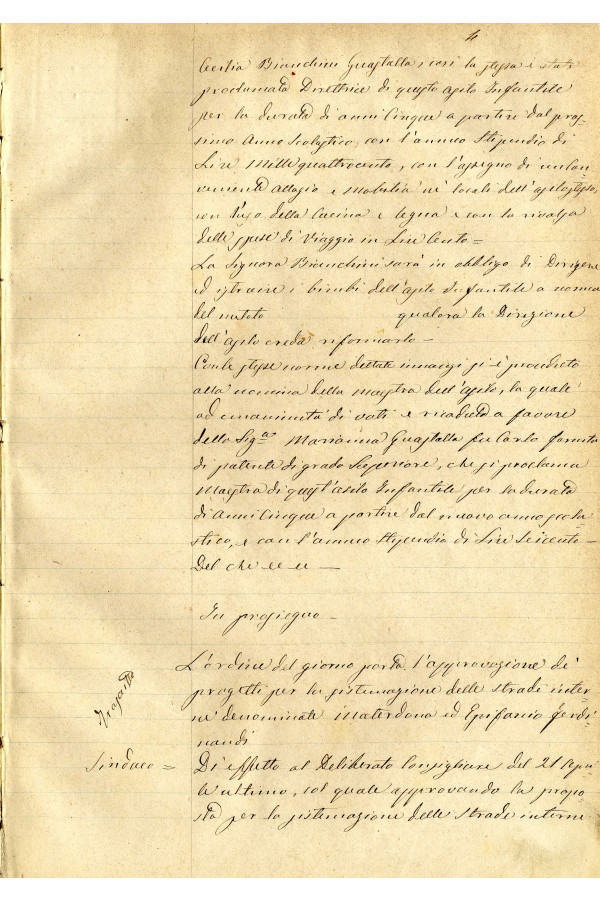 4
Cecilia Bianchini Guastalla, così la stessa è stata
proclamata Direttrice di questo asilo Infantile
per la durata di anni Cinque a partire dal pros-
simo Anno Scolastico, con l'annuo Stipendio di
Lire Millequattrocento, con l'assegno di un con-
veniente alloggio e mobilia ne' locali dell'asilo stesso,
con l'uso della Cucina e legna e con la rivalsa
delle spese di Viaggio in Lire Cento =
La Signora Bianchini sarà in obbligo di Dirigere
ed istruire i bimbi dell'asilo Infantile a norma
del metodo qualora la Direzione
dell'asilo creda riformarlo —
Con le stesse norme dettate innanzi si è proceduto
alla nomina della Maestra dell'asilo, la quale
ad unanimità di voti è ricaduta a favore
della Sig.ra Marianna Guastalla fu Carlo fornita
di patente di grado Superiore, che si proclama
Maestra di quest'asilo Infantile per la durata
di Anni Cinque a partire dal nuovo anno scola-
stico, e con l'annuo Stipendio di Lire Seicento —
Del che
In prosieguo
L'ordine del giorno porta l'approvazione de'
progetti per la sistemazione delle strade inter-
ne denominate Materdona ed Epifanio Ferdi-
nandi
Sindaco =
Di effetto al Deliberato Consigliare del 21
ultimo, col quale approvando la propo-
sta per la sistemazione delle strade interne